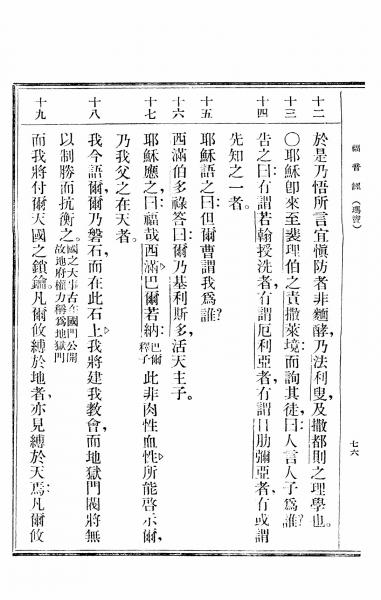 福音經（瑪竇）
七六
十二 於是乃悟所言宜愼防者非麵酵乃法利叟及撒都則之理學也。
十三 〇耶穌卽來至裴理伯之責撒萊境而詢其徒曰人言人子爲誰？
十四 告之曰有謂若翰授洗者有謂厄利亞者有謂日肋彌亞者有或謂
先知之一者。
十五 耶穌語之曰但爾曹謂我爲誰？
十六 西滿伯多祿答曰爾乃基利斯多活天主子。
十七 耶穌應之曰福哉西滿巴爾若納巴爾釋子此非肉性血性所能啓示爾，
乃我父之在天者。
十八 我今語爾爾乃磐石而在此石上我將建我教會而地獄門閥將無
以制勝而抗衡之。國之大事古在國門公開故地府權力稱爲地獄門
十九 而我將付爾天國之鎖鑰。凡爾攸縛於地者，亦見縛於天焉凡爾攸